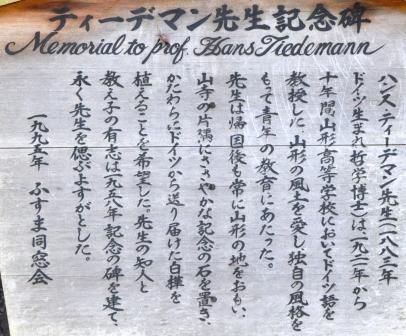 ティーデマン先生記念碑
Memorial to prof. Hans Tiedemann
ハンス・ティーデマン先生(一八八三年
ドイツ生まれ哲学博士)は一九二一年から
十年間山形高等学校においてドイツ語を
教授した。山形の風土を愛し独自の風格を
もって青年の教育にあたった。
先生は帰国後も常に山形の地をおもい、
山寺の片隅にささやかな記念の石を置き、
かたわらにドイツから送り届けた白樺を
植えることを希望した。先生の知人と
教え子の有志は一九六八年記念の碑を建て、
永く先生を偲ぶよすがとした。
一九九五年 ふすま同窓会